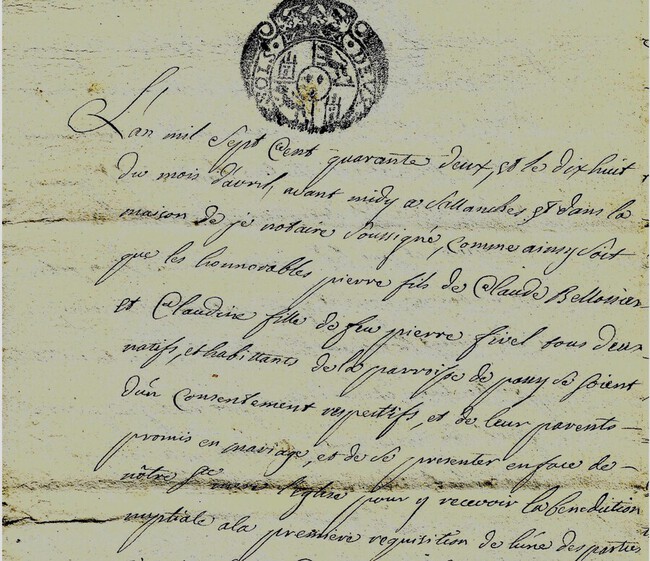 SOLS DEUX
L'an mil sept Cent quarante deux, et le dix huit
du mois d'avril, avant midy a Sallanches et dans la
maison de je notaire soussigné, comme ainsy soit
que les honnorables pierre fils de Claude Bellossier
et Claudine fille de feu pierre fivel tous deux
natifs, et habittants de la parroisse de passy se soient
d'un consentement respectifs, et de leur parents
promis en mariage, et de se presenter en face de
nôtre Ste mere l'Eglise pour y recevoir la benediction
nuptiale a la premiere requisition de l'une des parties